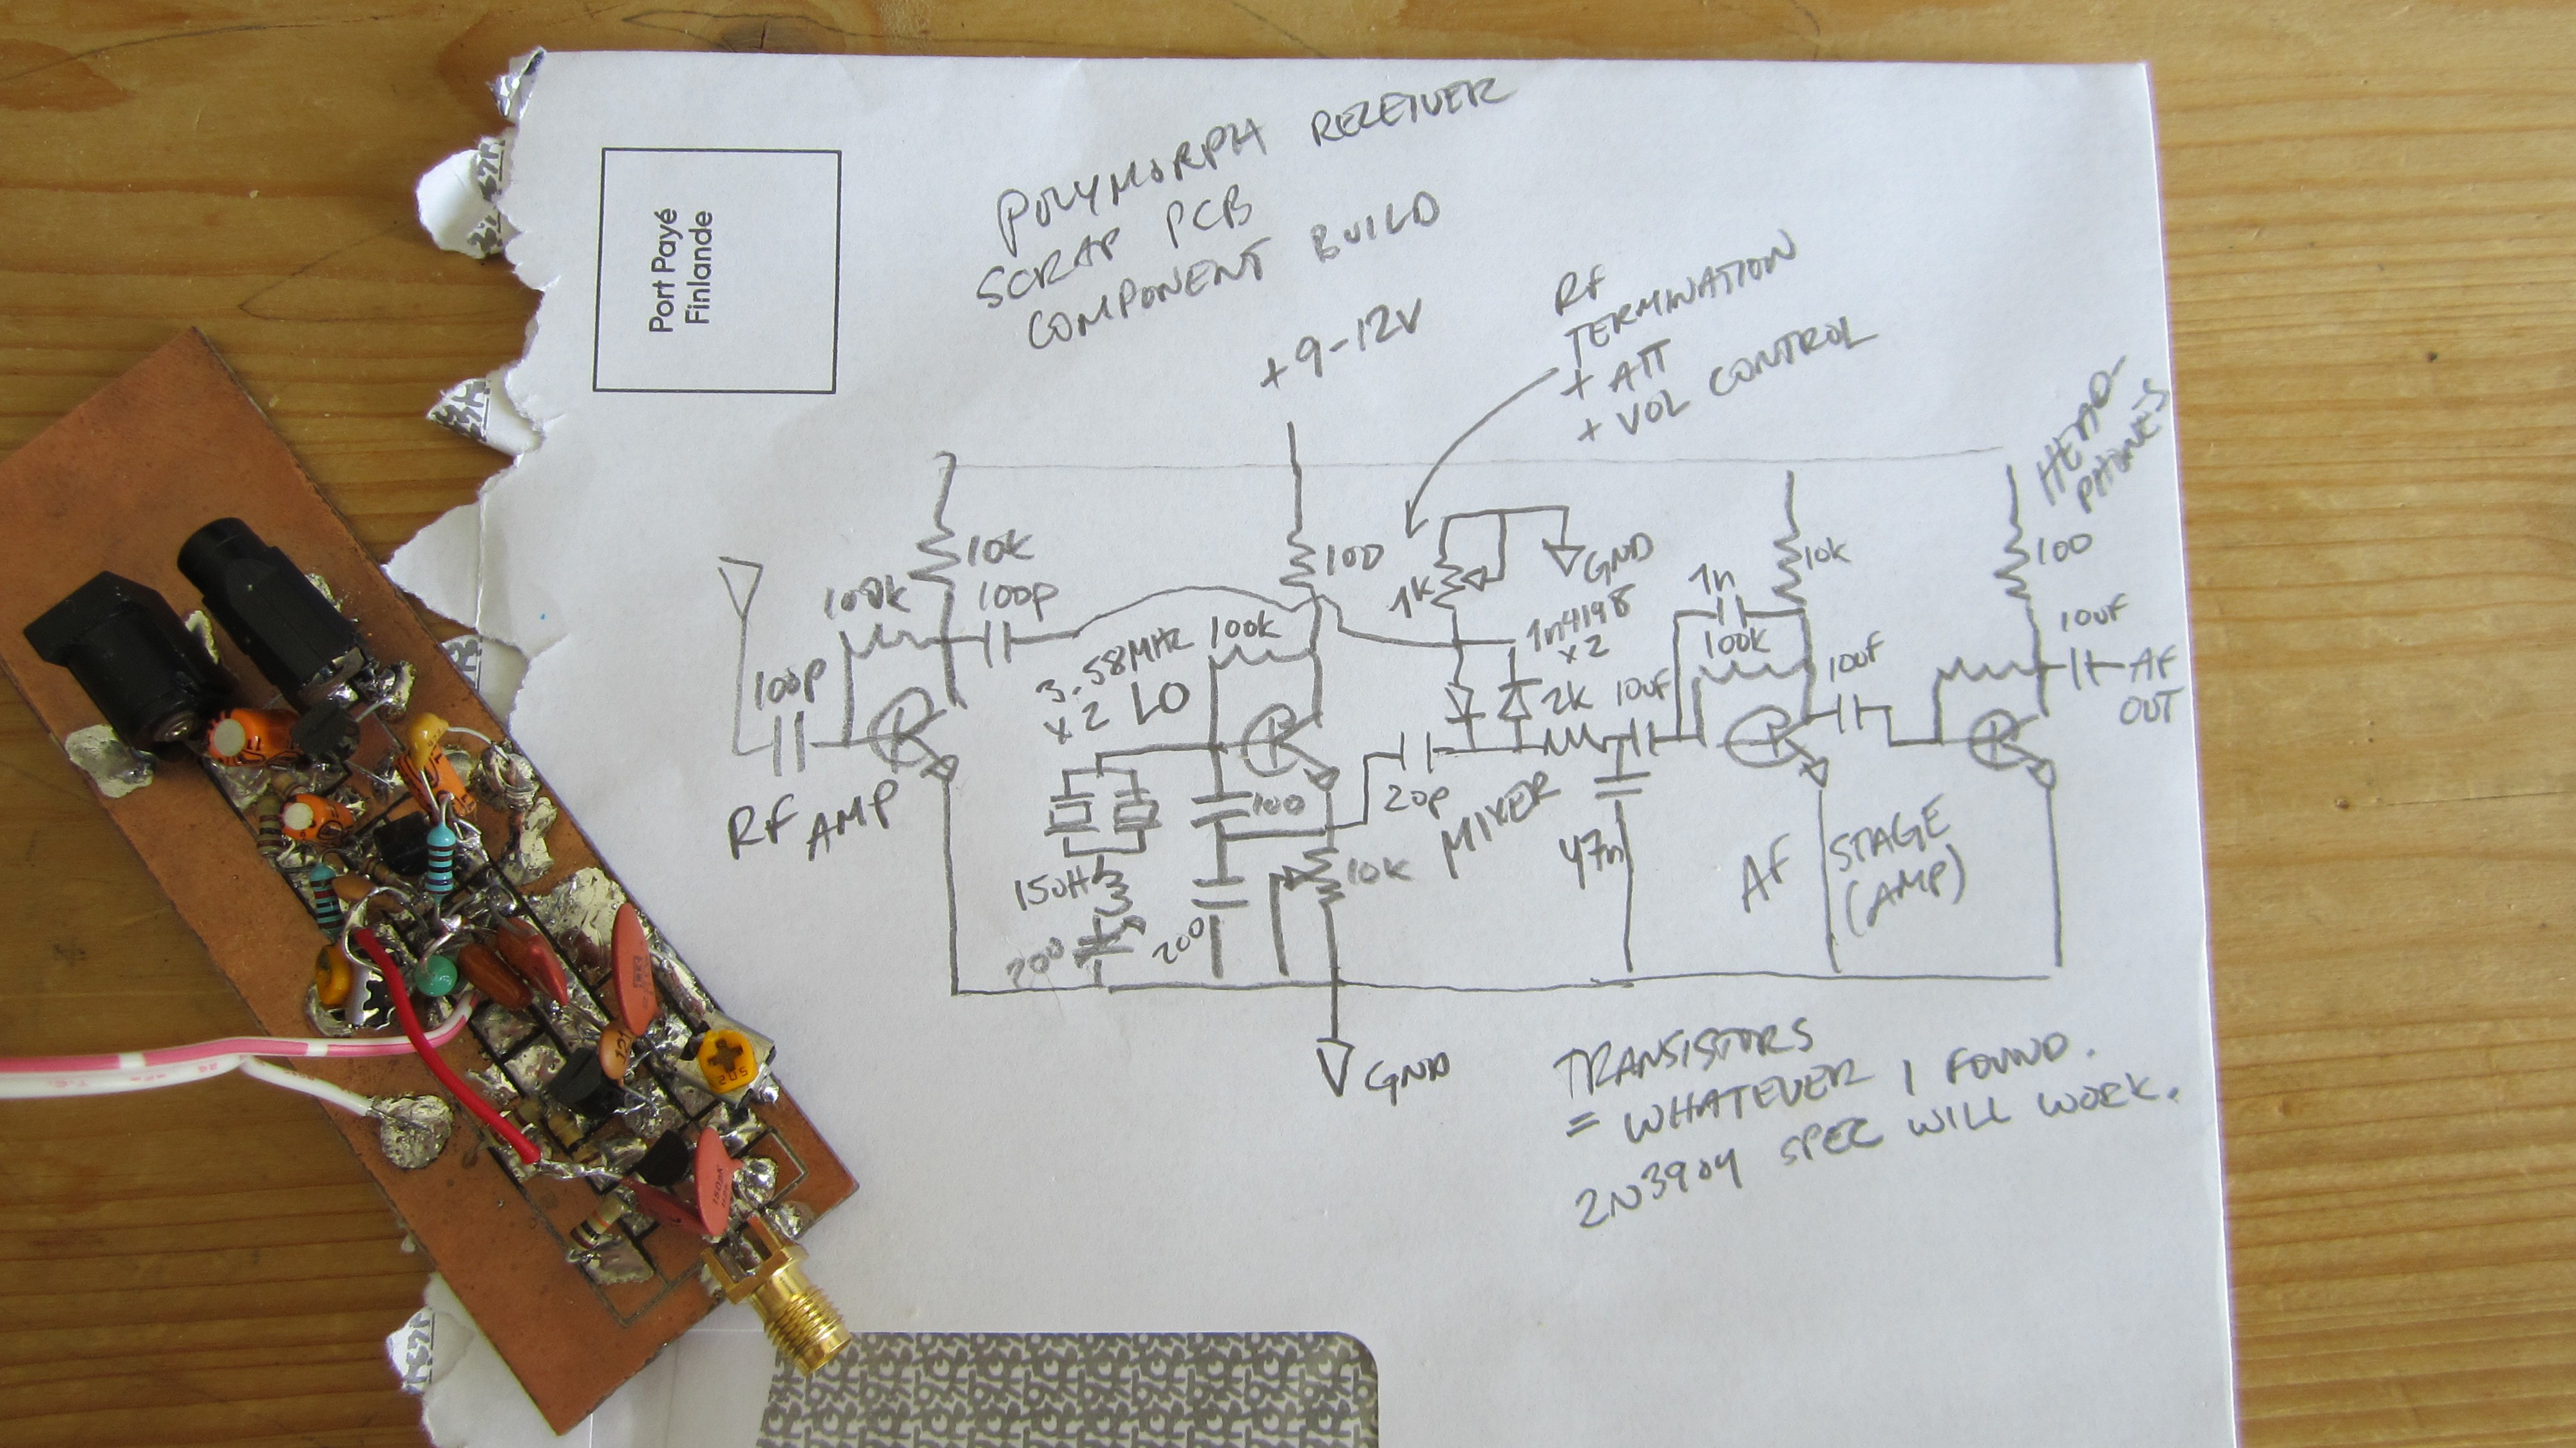 Port Payé
Finlande
POLYMORPH RECEIVER
SCRAP PCB
COMPONENT BUILD
+9-12V
RF
TERMINATION
+ ATT
+ VOL CONTROL
HEAD-
PHONES
10k
100k
100p
100p
RF AMP
3.58MHz
x2 LO
100k
100
100
200
15uH
200
10k
GND
1k
GND
1n4148
x2
20p
MIXER
2k
10uF
47n
1n
100k
10k
10uF
AF STAGE
(AMP)
100
10uF
AF
OUT
GND
TRANSISTORS
= WHATEVER I FOUND.
2N3904 SPEC WILL WORK.
502